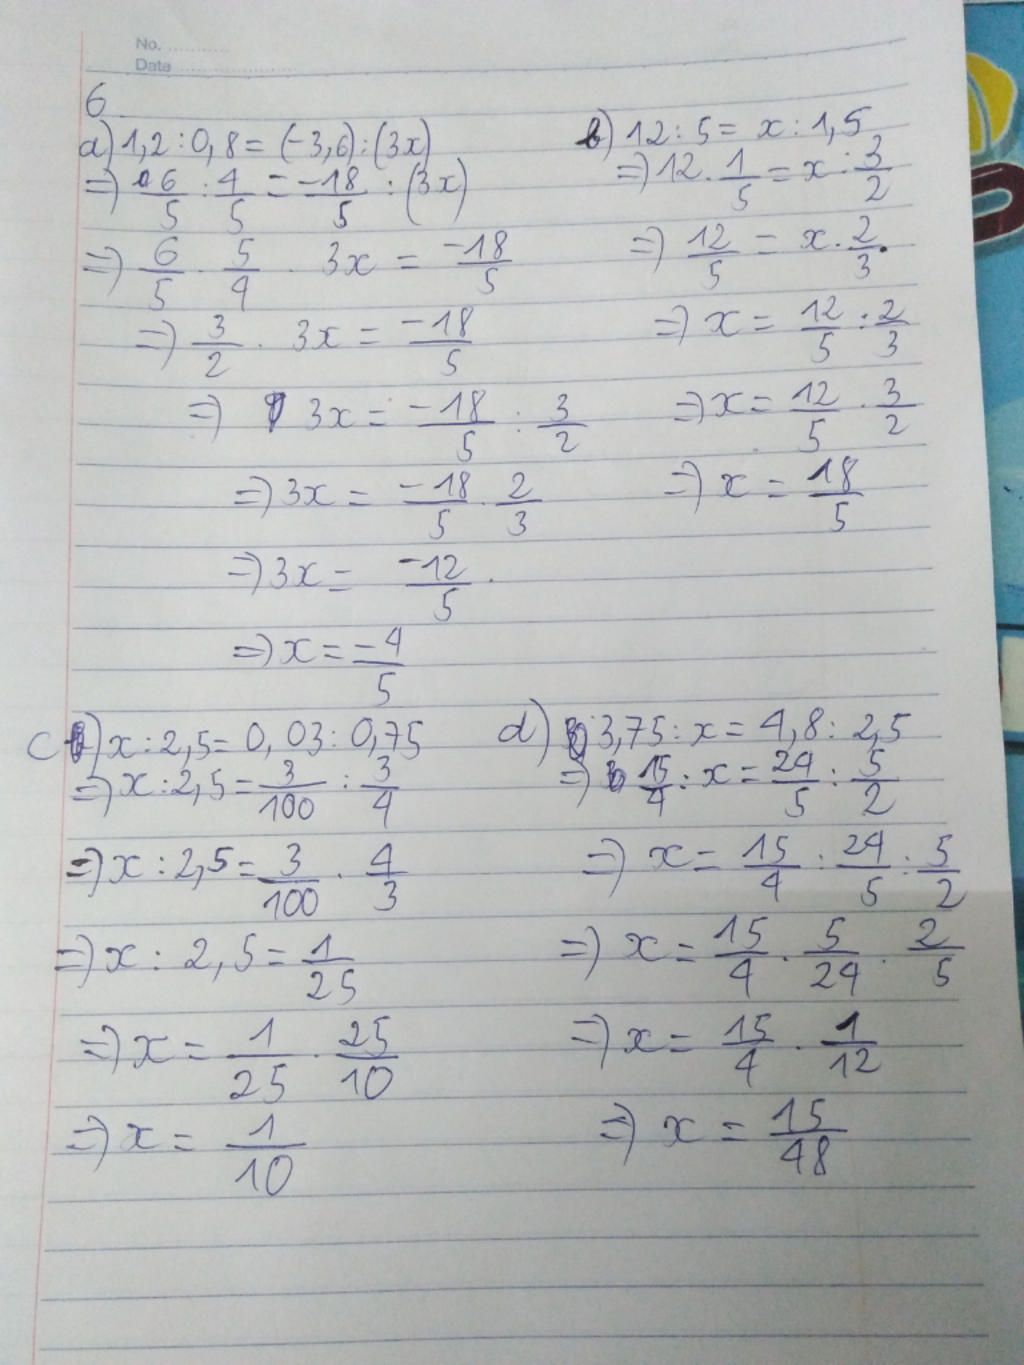 No. ............
Date ........................
6
a) 1,2 : 0,8 = (-3,6) : (3x)
=) 6/5 : 4/5 = -18/5 : (3x)
=) 6/5 . 5/4 . 3x = -18/5
=) 3/2 . 3x = -18/5
=) 3x = -18/5 : 3/2
=) 3x = -18/5 . 2/3
=) 3x = -12/5 .
=) x = -4/5
b) 12 : 5 = x : 1,5
=) 12 . 1/5 = x : 3/2
=) 12/5 = x . 2/3 .
=) x = 12/5 : 2/3
=) x = 12/5 . 3/2
=) x = 18/5
c) x : 2,5 = 0,03 : 0,75
=) x : 2,5 = 3/100 : 3/4
=) x : 2,5 = 3/100 . 4/3
=) x : 2,5 = 1/25
=) x = 1/25 . 25/10
=) x = 1/10
d) 3,75 : x = 4,8 : 2,5
=) 15/4 : x = 24/5 : 5/2
=) x = 15/4 : 24/5 : 5/2
=) x = 15/4 . 5/24 . 2/5
=) x = 15/4 . 1/12
=) x = 15/48